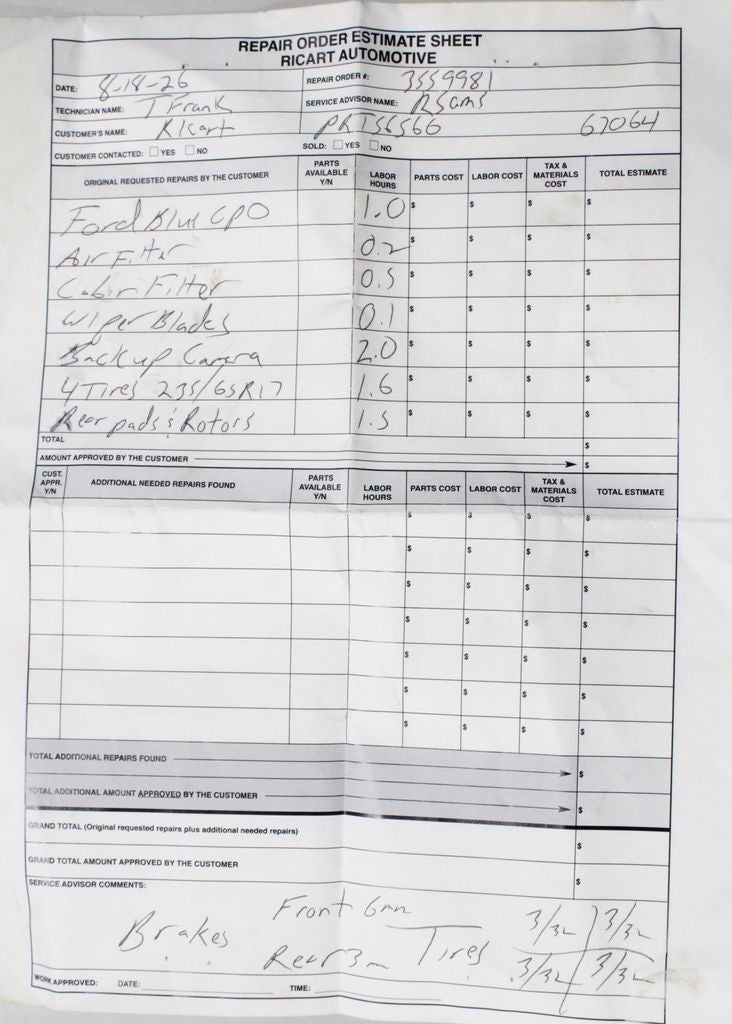 REPAIR ORDER ESTIMATE SHEET
RICART AUTOMOTIVE
DATE: 8-18-26 REPAIR ORDER #: 3559981
TECHNICIAN NAME: T Frank SERVICE ADVISOR NAME: RSams
CUSTOMER'S NAME: Ricart PRT56566 67064
CUSTOMER CONTACTED: YES NO SOLD: YES NO
ORIGINAL REQUESTED REPAIRS BY THE CUSTOMER PARTS AVAILABLE Y/N LABOR HOURS PARTS COST LABOR COST TAX & MATERIALS COST TOTAL ESTIMATE
Ford Blue CPO 1.0 $ $ $ $
Air Filter 0.2 $ $ $ $
Cabin Filter 0.5 $ $ $ $
Wiper Blades 0.1 $ $ $ $
Backup Camera 2.0 $ $ $ $
4 Tires 235/65R17 1.6 $ $ $ $
Rear pads & Rotors 1.5 $ $ $ $
TOTAL $
AMOUNT APPROVED BY THE CUSTOMER $
CUST. APPR. Y/N ADDITIONAL NEEDED REPAIRS FOUND PARTS AVAILABLE Y/N LABOR HOURS PARTS COST LABOR COST TAX & MATERIALS COST TOTAL ESTIMATE
$ $ $ $
$ $ $ $
$ $ $ $
$ $ $ $
$ $ $ $
$ $ $ $
$ $ $ $
TOTAL ADDITIONAL REPAIRS FOUND $
TOTAL ADDITIONAL AMOUNT APPROVED BY THE CUSTOMER $
GRAND TOTAL (Original requested repairs plus additional needed repairs) $
GRAND TOTAL AMOUNT APPROVED BY THE CUSTOMER $
SERVICE ADVISOR COMMENTS:
Brakes Front 6mm Tires 3/32 3/32
Rear 3m 3/32 3/32
WORK APPROVED: DATE: TIME: